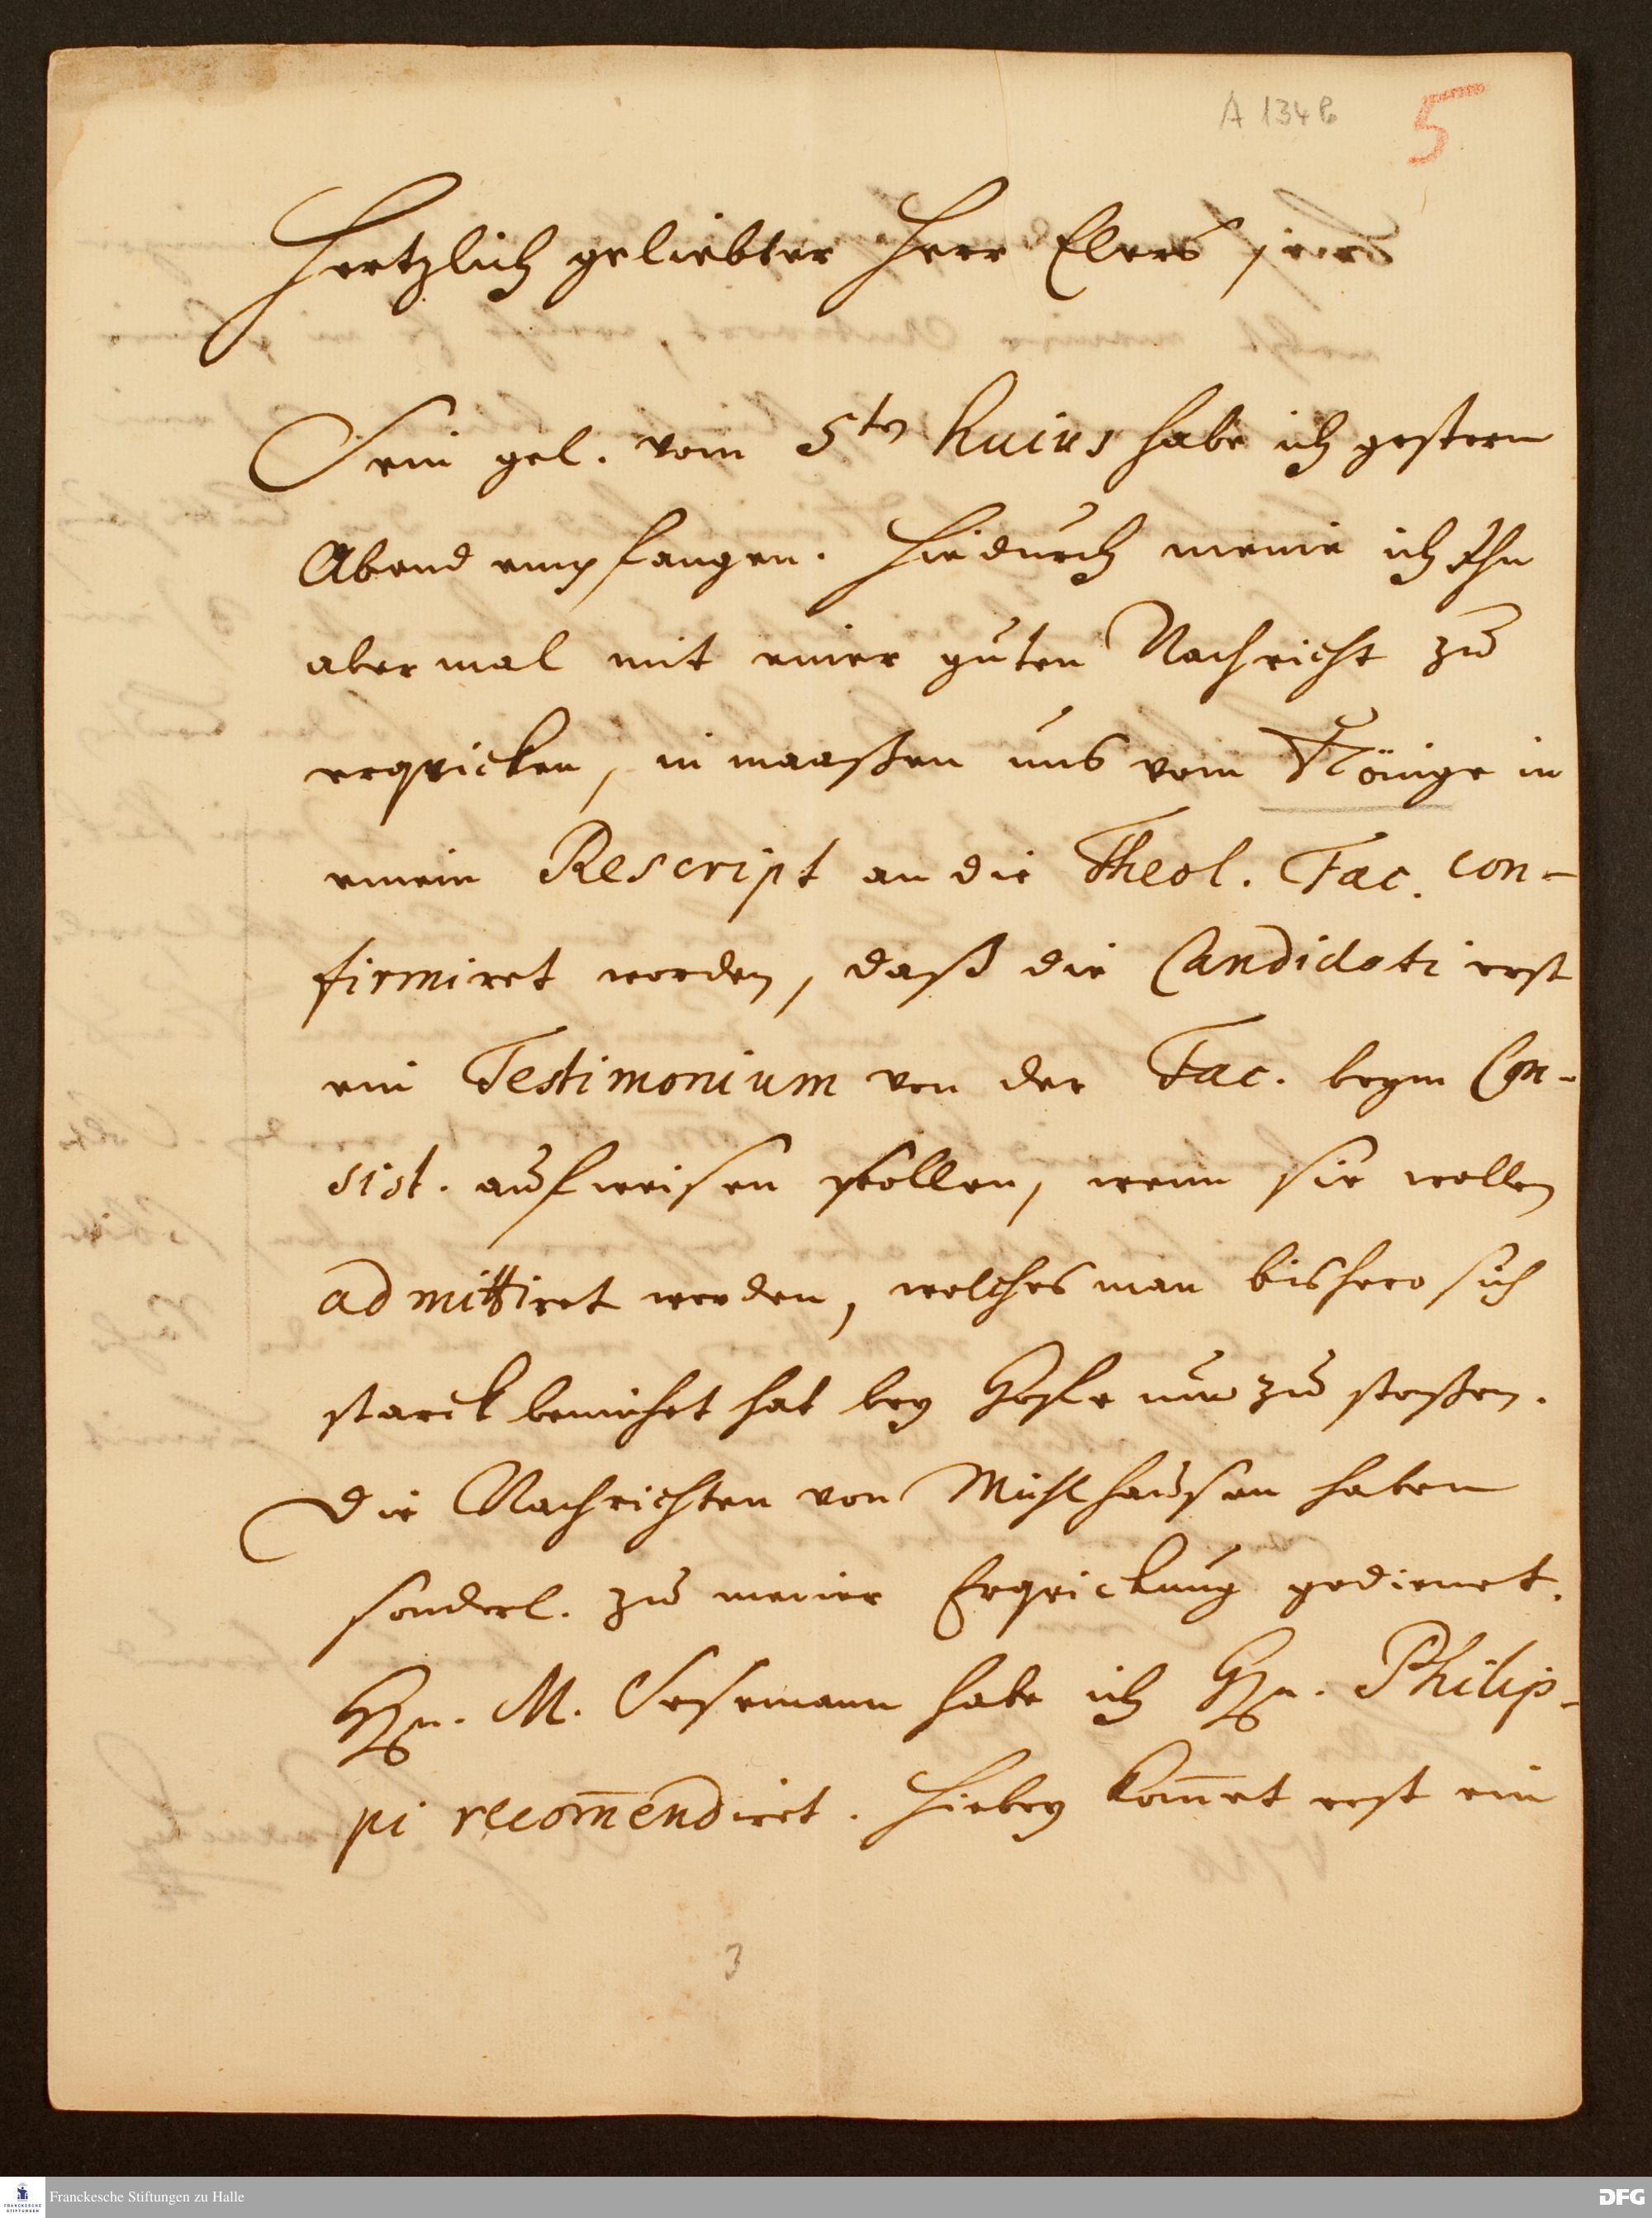 A 134 b
5
Hertzlich geliebter Herr Elers,
Sein gel. vom 5ten huius habe ich gestern
Abend empfangen. Hiedurch meine ich Ihn
abermal mit einer guten Nachricht zu
erqvicken, inmaaßen uns vom Könige in
einem Rescript an die Theol. Fac. con-
firmiret worden, daß die Candidati erst
ein Testimonium von der Fac. beym Con-
sist. aufweisen sollen, wenn sie wollen
admittiret werden, welches man bishero sich
starck bemühet hat bey Hofe umzustoßen.
Die Nachrichten von Mühlhausen haben
sonderl. zu meiner Erqvickung gedienet.
Hn. M. Sesemann habe ich Hn. Philip-
pi recom̄endiret. Hiebey kom̄et erst ein
3
Franckesche Stiftungen zu Halle
DFG